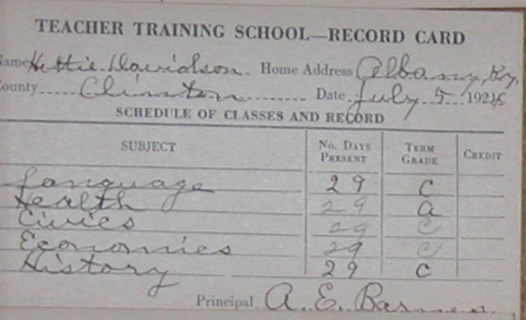 TEACHER TRAINING SCHOOL—RECORD CARD
Name Hettie Davidson. Home Address Albany, Ky.
County Clinton Date July 5 1926
SCHEDULE OF CLASSES AND RECORD
SUBJECT No. Days Present Term Grade Credit
Language 29 C
Health 29 a
Civics 29 C
Economics 29 C
History 29 C
Principal A. E. Barnes.